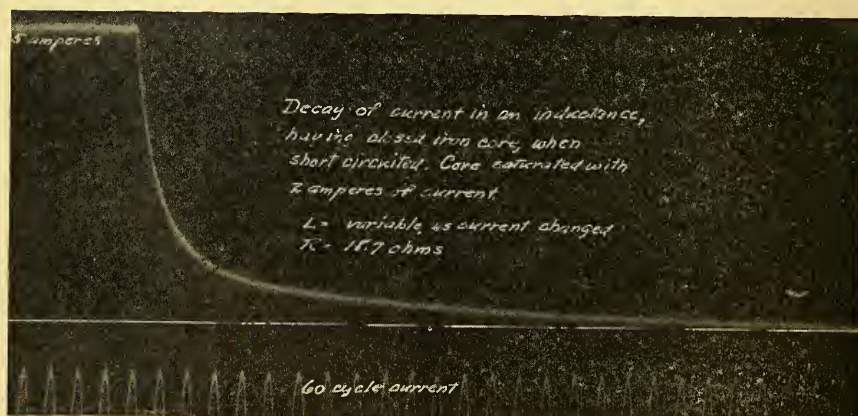 5 amperes
Decay of current in an inductance,
having closed iron core, when
short circuited. Core saturated with
2 amperes of current
L = variable as current changed
R = 18.7 ohms
60 cycle current